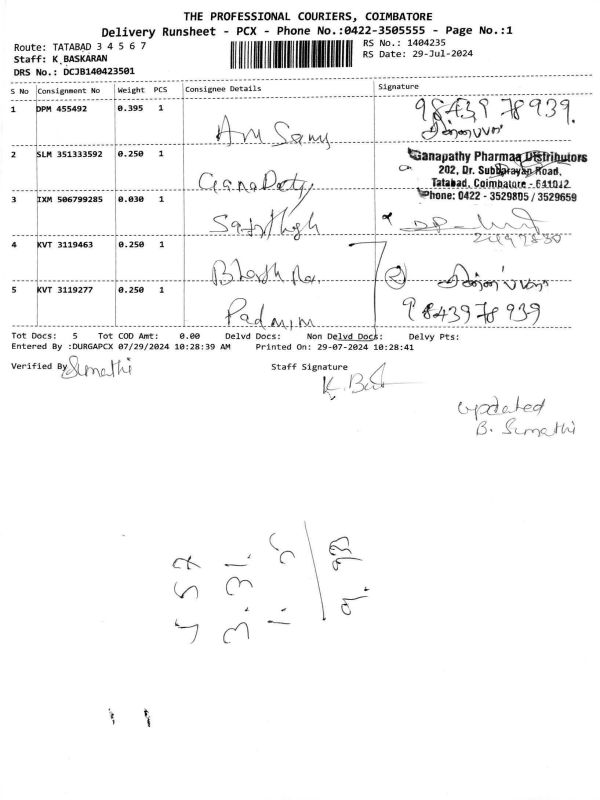 THE PROFESSIONAL COURIERS, COIMBATORE
Delivery Runsheet - PCX - Phone No.:0422-3505555 - Page No.:1
Route: TATABAD 3 4 5 6 7
RS No.: 1404235
Staff: K BASKARAN
RS Date: 29-Jul-2024
DRS No.: DCJB140423501
S No Consignment No Weight PCS Consignee Details Signature
1 DPM 455492 0.395 1 98439 78939.
2 SLM 351333592 0.250 1
Ganapathy Pharmaa Distributors
202, Dr. Subbarayan Road,
Tatabad, Coimbatore - 641012
Phone: 0422 - 3529805 / 3529659
3 IXM 506799285 0.030 1
4 KVT 3119463 0.250 1
5 KVT 3119277 0.250 1 Padmini 98439 78 939
Tot Docs: 5 Tot COD Amt: 0.00 Delvd Docs: Non Delvd Docs: Delvy Pts:
Entered By :DURGAPCX 07/29/2024 10:28:39 AM Printed On: 29-07-2024 10:28:41
Verified By Sumathi Staff Signature
updated
B. Sumathi